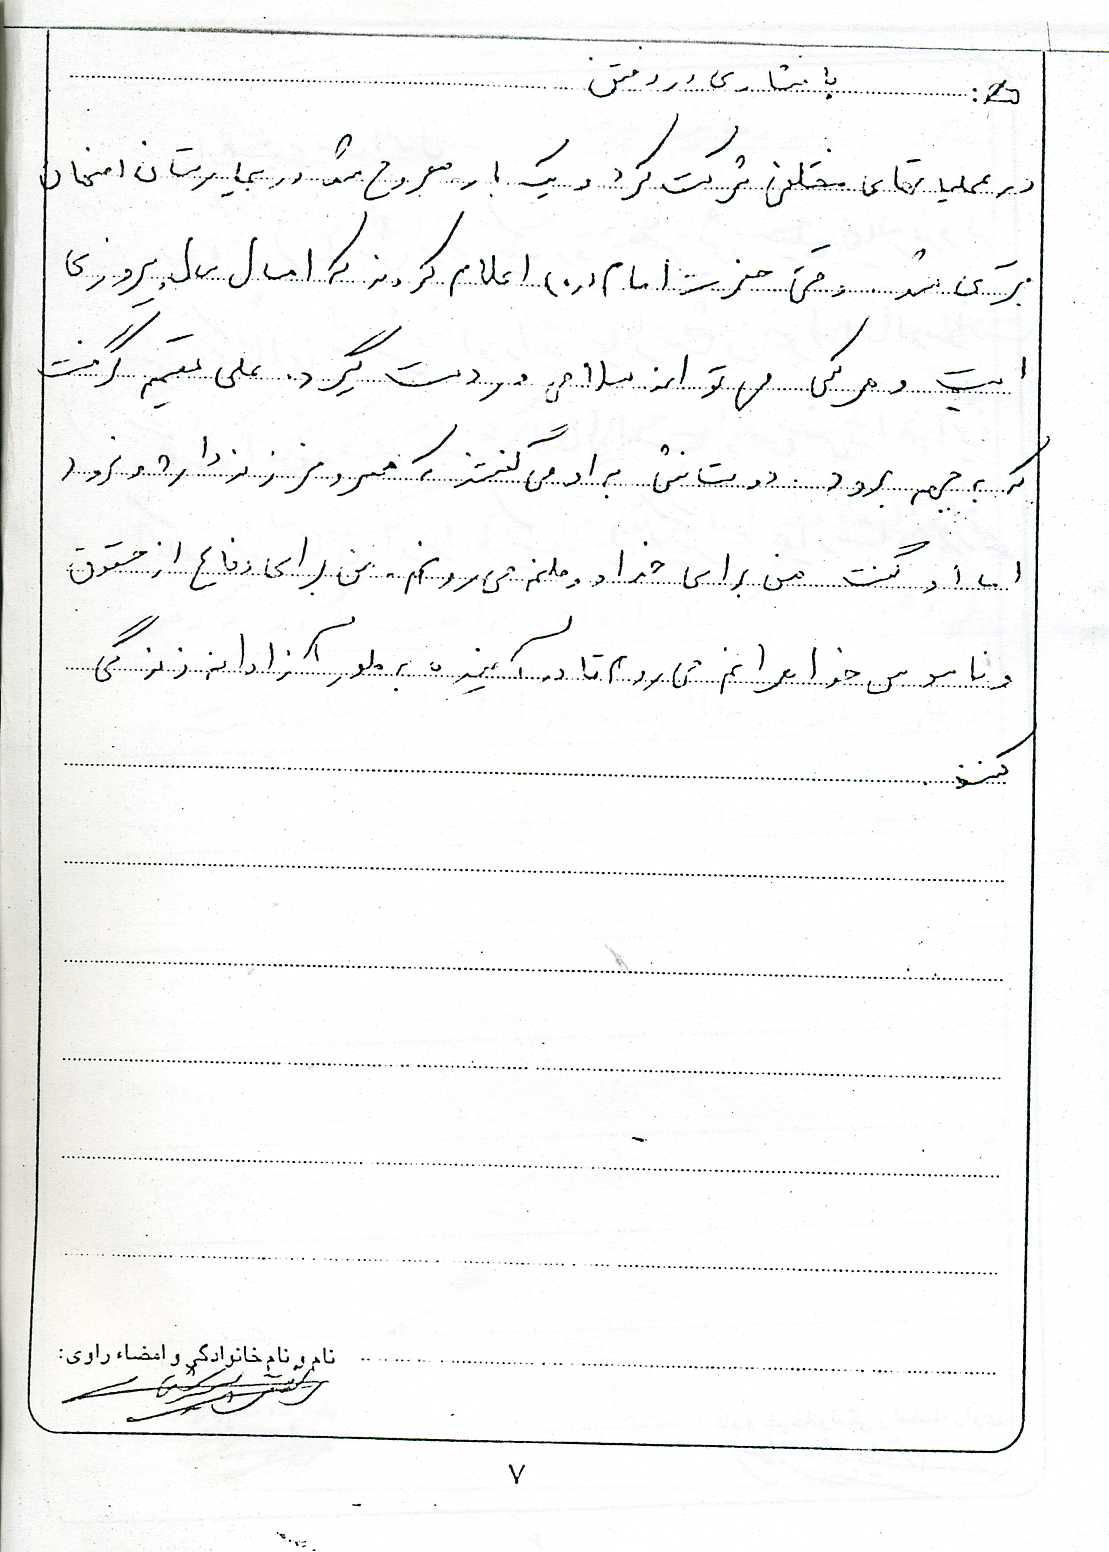 پافشاری در رفتن
در عملیاتهای مختلفی شرکت کرد و یک بار مجروح شد در بیمارستان امتحان
بستری شد. وقتی حضرت امام (ره) اعلام کردند که امسال سال پیروزی
است و هر کس می تواند سلاح در دست گیرد. علی تصمیم گرفت
که به جبهه برود. دوستانش به او می گفتند که همسر و فرزند داری و نرو
اما او گفت من برای خدا و می روم. من برای دفاع از حقوق
و ناموس خواهرانم می روم تا در آینده به طور آزادانه زندگی
کنند.
نام و نام خانوادگی و امضاء راوی:
۷